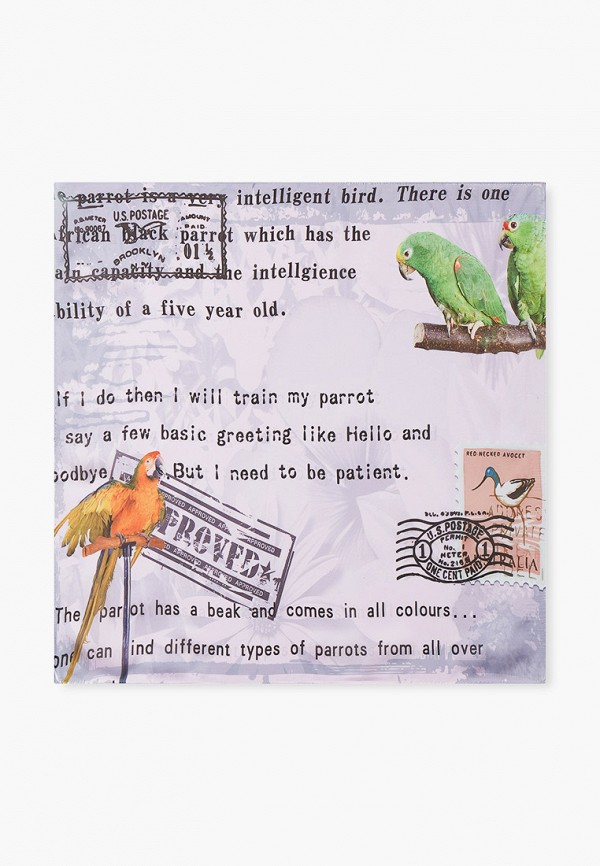 parrot is a very intelligent bird. There is one
African Black parrot which has the
ain capatity and the intellgience
bility of a five year old.
P.B.METER
No.90067
U.S. POSTAGE
BROOKLYN
N.Y.
AMOUNT
PAID
.01½
If I do then I will train my parrot
say a few basic greeting like Hello and
oodbye. But I need to be patient.
APPROVED APPROVED APPROVED APPROVED
PROVED
APPROVED APPROVED APPROVED
RED-NECKED AVOCET
U.S. POSTAGE
1 PERMIT 1
No.
METER
No. 2168
ONE CENT PAID
RALIA
The parrot has a beak and comes in all colours...
one can ind different types of parrots from all over